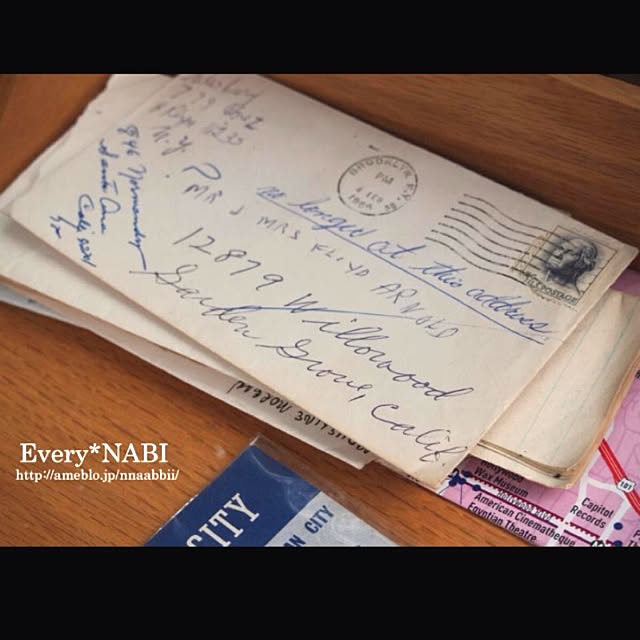 N.Y.
BROOKLYN, N.Y.
PM
4 FEB
1966
POSTAGE
no longer at this address
MR & MRS FLOYD ARNOLD
12879 Willowood
Garden Grove, Calif.
846 Normandy
Santa Ana
Calif
Every*NABI
http://ameblo.jp/nnaabbii/
CITY
AN CITY
Wax Museum
American Cinematheque
Egyptian Theatre
Capitol
Records
101